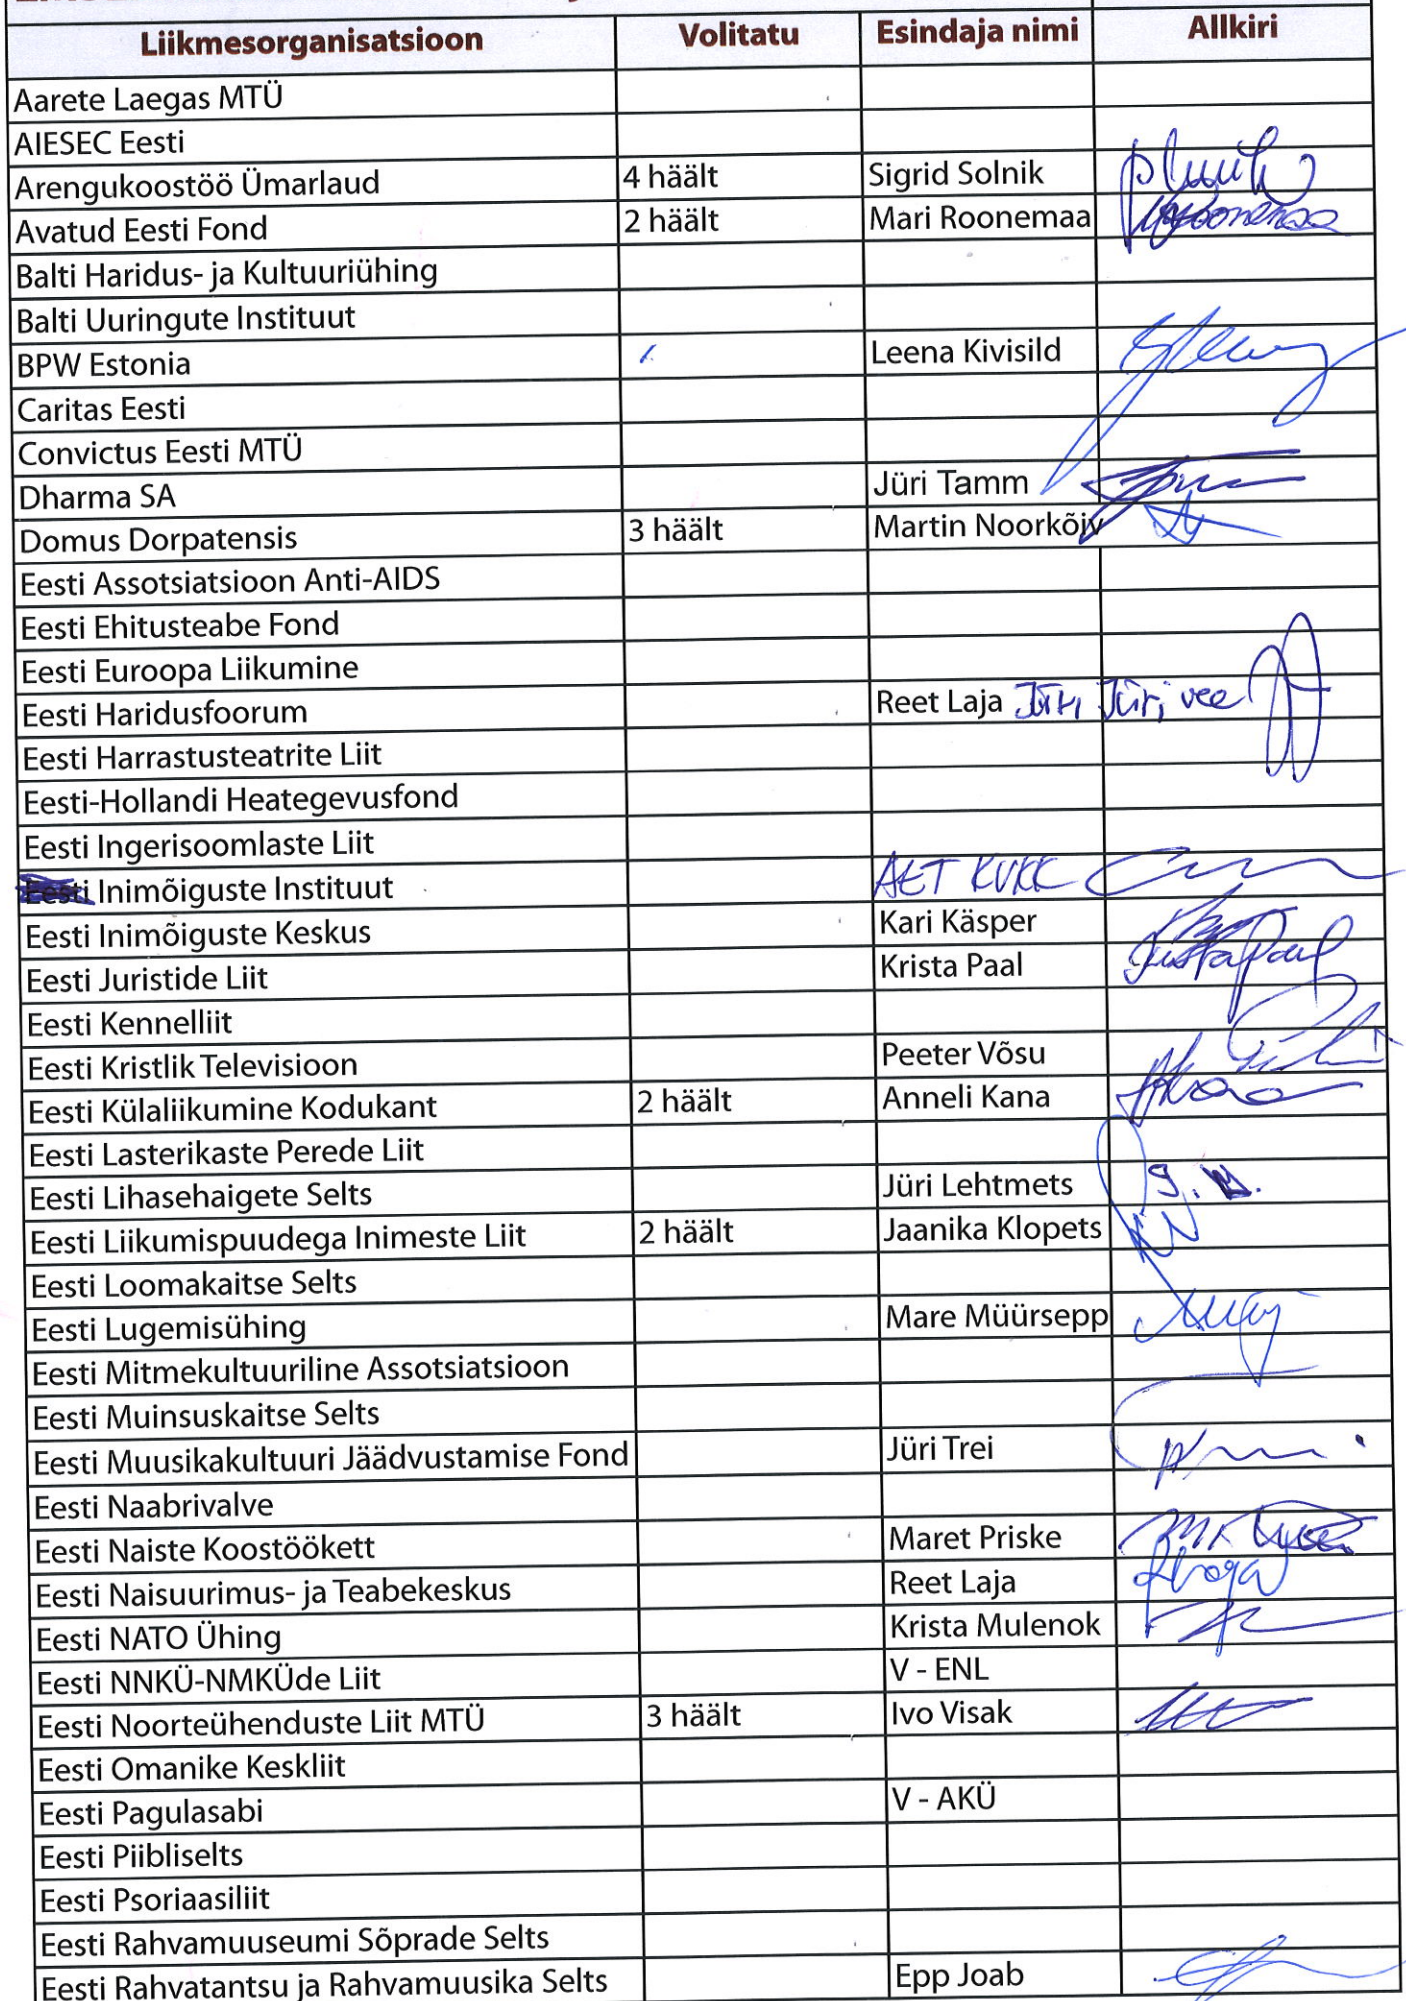 Liikmesorganisatsioon Volitatu Esindaja nimi Allkiri
Aarete Laegas MTÜ
AIESEC Eesti
Arengukoostöö Ümarlaud 4 häält Sigrid Solnik
Avatud Eesti Fond 2 häält Mari Roonemaa
Balti Haridus- ja Kultuuriühing
Balti Uuringute Instituut
BPW Estonia Leena Kivisild
Caritas Eesti
Convictus Eesti MTÜ
Dharma SA Jüri Tamm
Domus Dorpatensis 3 häält Martin Noorkõiv
Eesti Assotsiatsioon Anti-AIDS
Eesti Ehitusteabe Fond
Eesti Euroopa Liikumine
Eesti Haridusfoorum Reet Laja Jüri Jüri vee
Eesti Harrastusteatrite Liit
Eesti-Hollandi Heategevusfond
Eesti Ingerisoomlaste Liit
Eesti Inimõiguste Instituut AET KUKK
Eesti Inimõiguste Keskus Kari Käsper
Eesti Juristide Liit Krista Paal Krista Paal
Eesti Kennelliit
Eesti Kristlik Televisioon Peeter Võsu
Eesti Külaliikumine Kodukant 2 häält Anneli Kana
Eesti Lasterikaste Perede Liit
Eesti Lihasehaigete Selts Jüri Lehtmets
Eesti Liikumispuudega Inimeste Liit 2 häält Jaanika Klopets
Eesti Loomakaitse Selts
Eesti Lugemisühing Mare Müürsepp
Eesti Mitmekultuuriline Assotsiatsioon
Eesti Muinsuskaitse Selts
Eesti Muusikakultuuri Jäädvustamise Fond Jüri Trei
Eesti Naabrivalve
Eesti Naiste Koostöökett Maret Priske
Eesti Naisuurimus- ja Teabekeskus Reet Laja
Eesti NATO Ühing Krista Mulenok
Eesti NNKÜ-NMKÜde Liit V - ENL
Eesti Noorteühenduste Liit MTÜ 3 häält Ivo Visak
Eesti Omanike Keskliit
Eesti Pagulasabi V - AKÜ
Eesti Piibliselts
Eesti Psoriaasiliit
Eesti Rahvamuuseumi Sõprade Selts
Eesti Rahvatantsu ja Rahvamuusika Selts Epp Joab